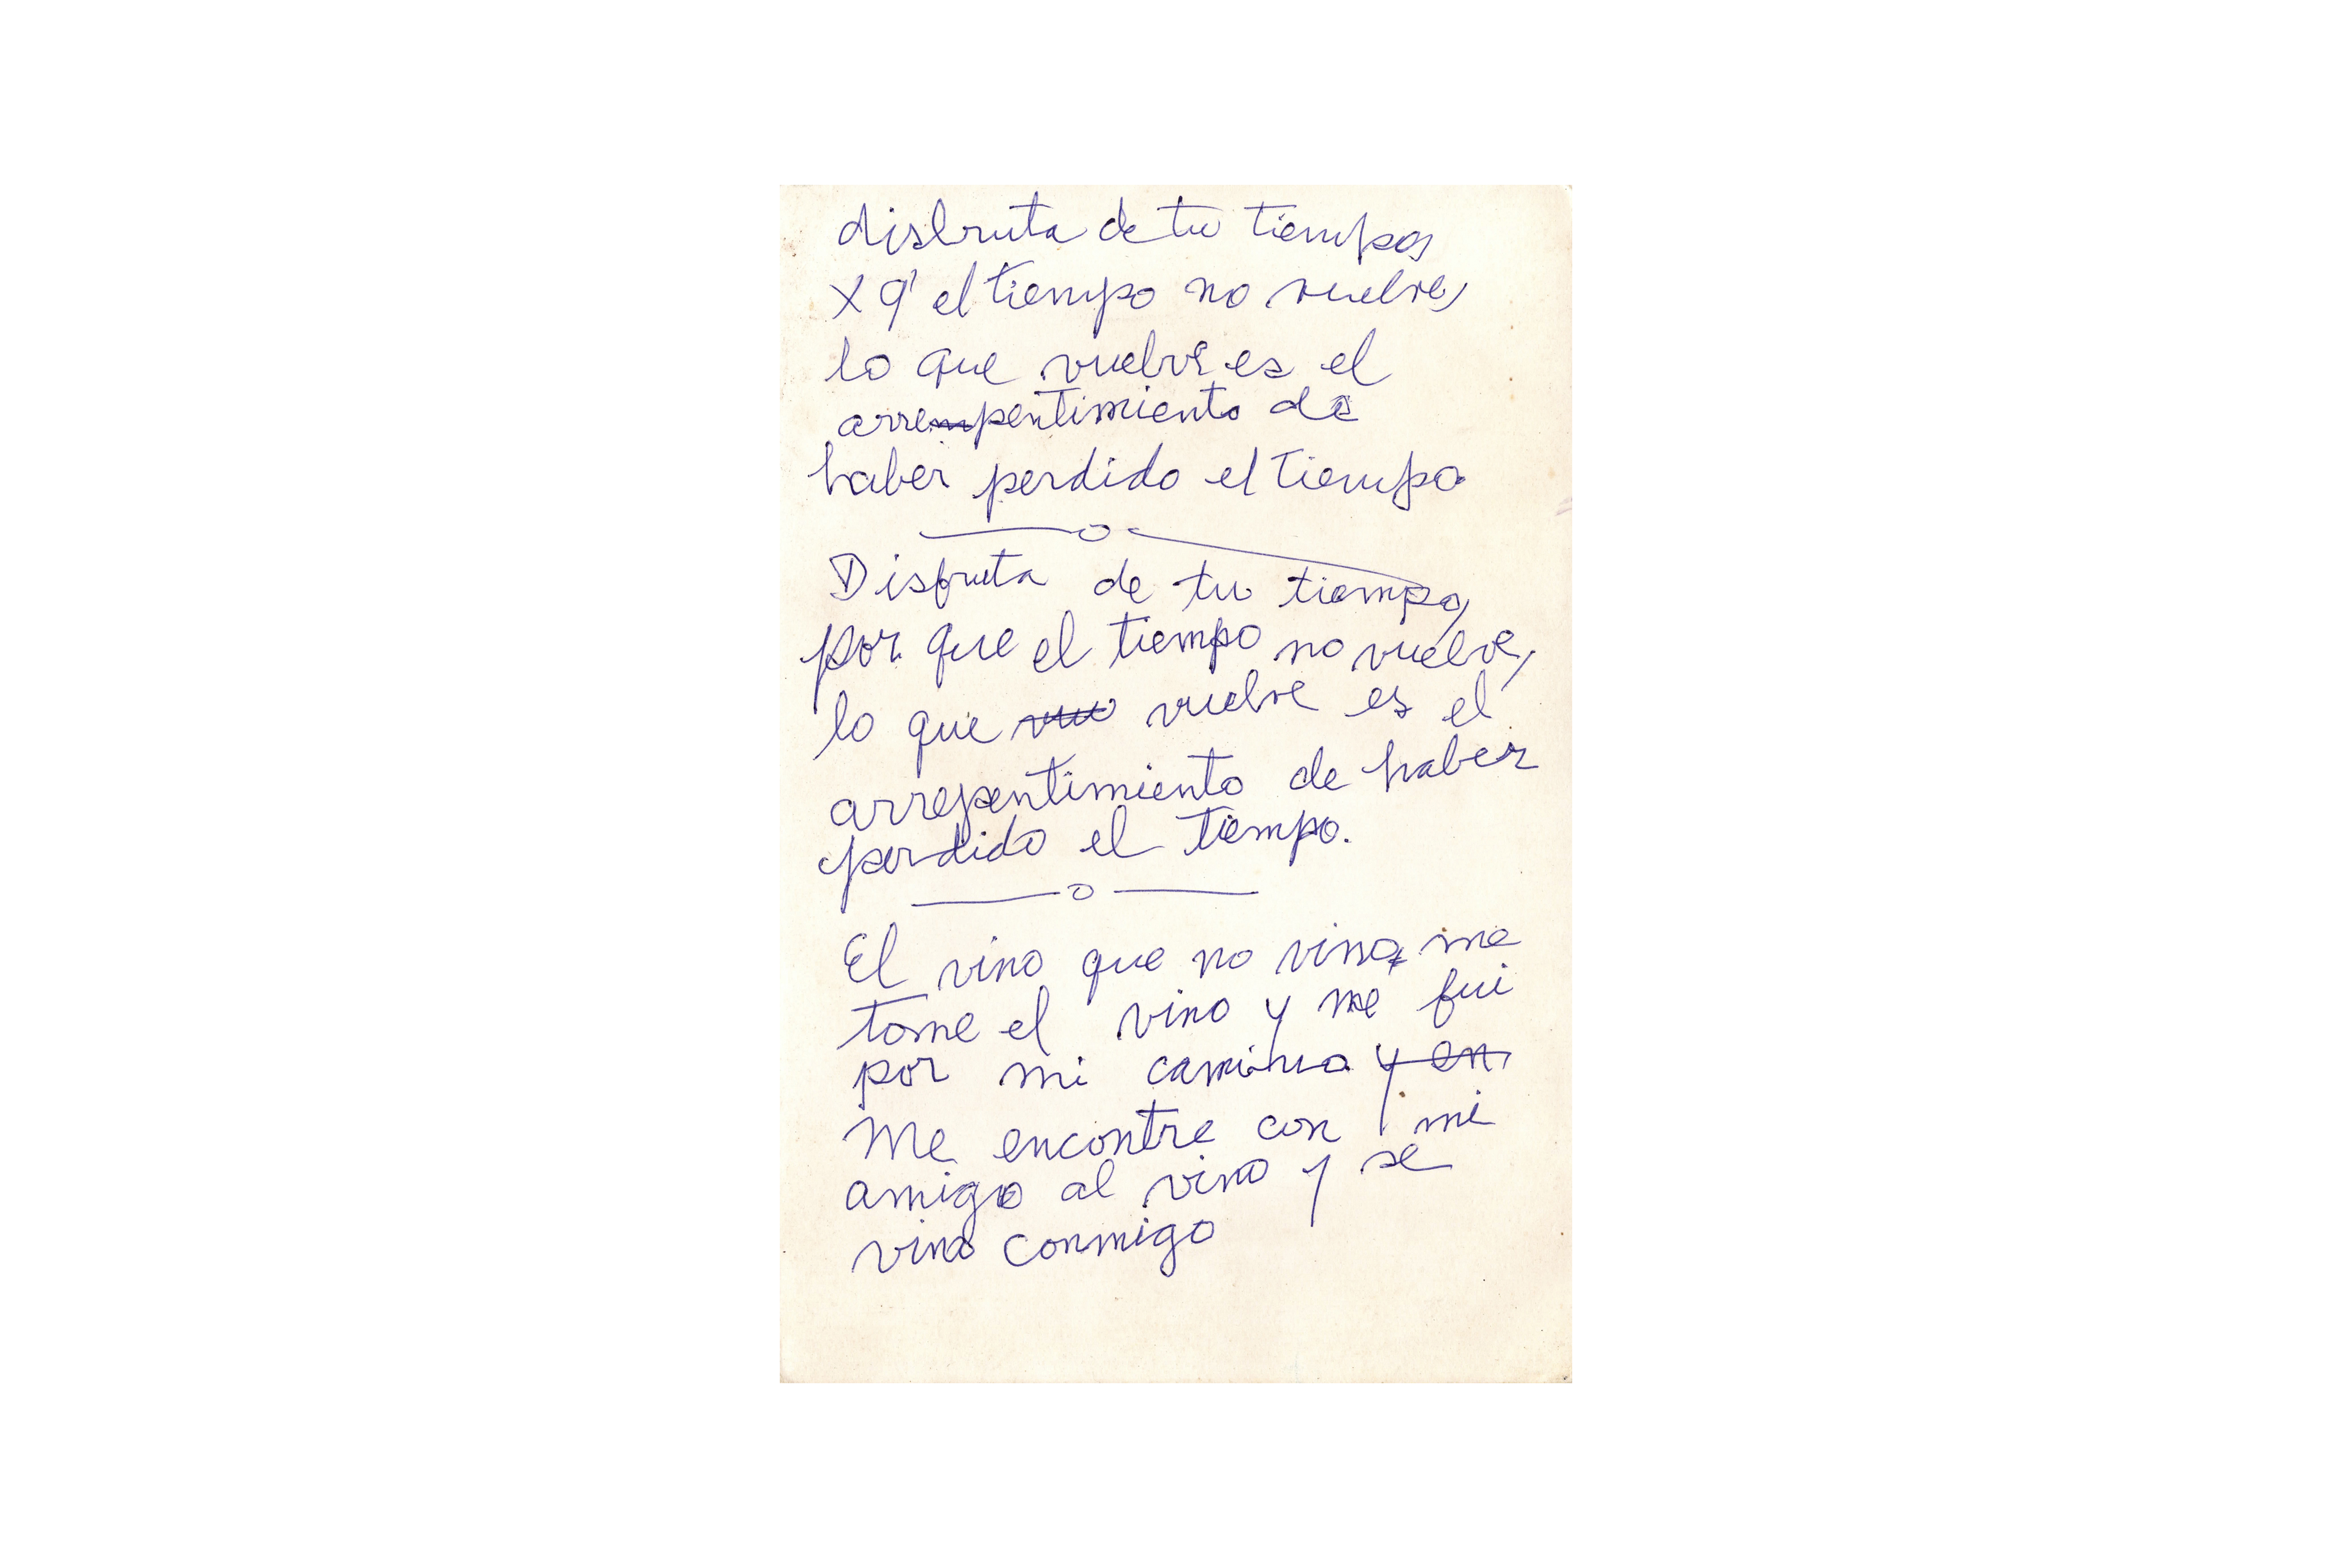 disfruta de tu tiempo,
X q' el tiempo no vuelve,
lo que vuelve es el
arrepentimiento de
haber perdido el tiempo
—o—
Disfruta de tu tiempo,
por que el tiempo no vuelve,
lo que vue vuelve es el
arrepentimiento de haber
perdido el tiempo.
—o—
El vino que no vino, me
tome el vino y me fui
por mi camino y en
Me encontre con mi
amigo al vino y se
vino conmigo